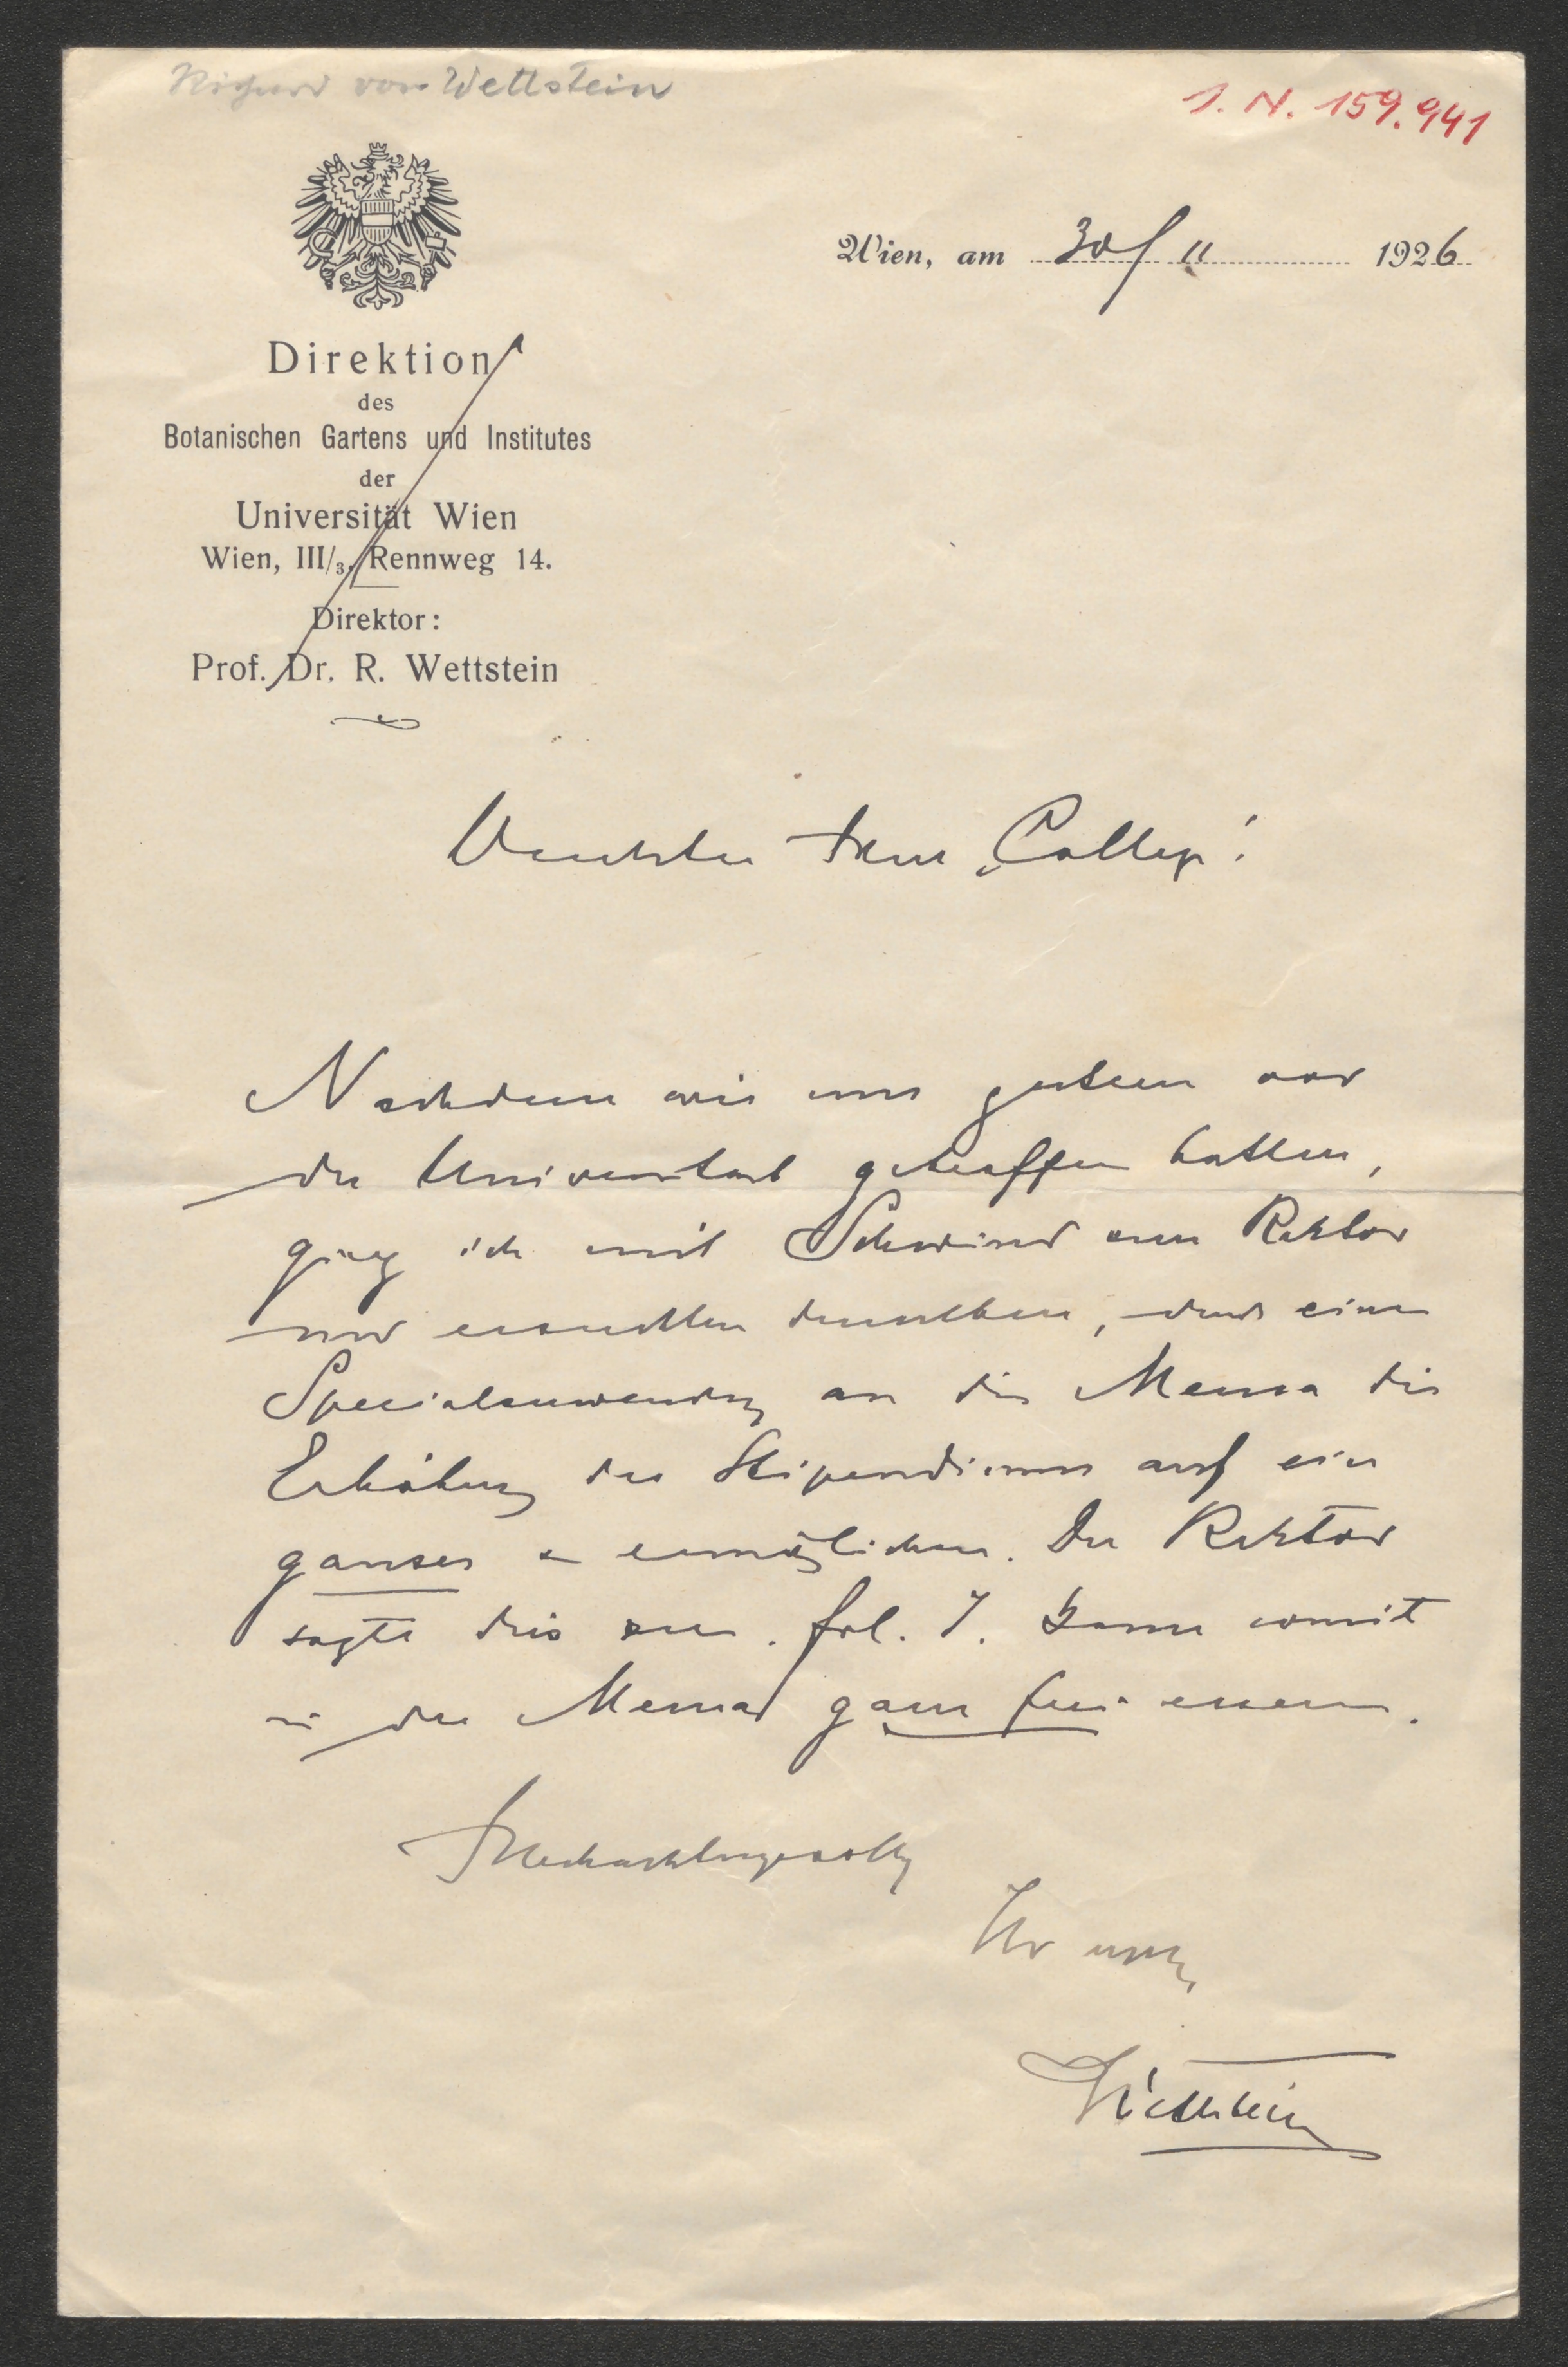 Richard von Wettstein
I. N. 159.941
Wien, am 30/11 1926
Direktion
des
Botanischen Gartens und Institutes
der
Universität Wien
Wien, III/3, Rennweg 14.
Direktor:
Prof. Dr. R. Wettstein
Verehrter Herr College!
Nachdem wir uns gestern vor
der Universität getroffen hatten,
ging ich mit Schwind zum Rektor
und ersuchten denselben, durch eine
Specialzuwendung an die Mensa die
Erhöhung des Stipendiums auf ein
ganzes zu ermöglichen. Der Rektor
sagte dies zu. Frl. J. kann somit
in der Mensa ganz frei essen.
Hochachtungsvoll
Ihr erg.
Wettstein